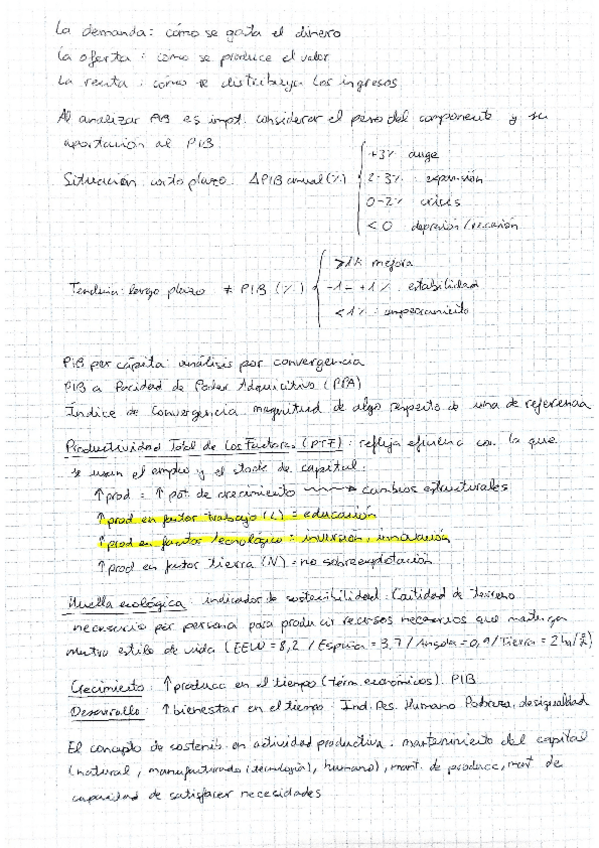 La demanda: cómo se gasta el dinero
La oferta: cómo se produce el valor
La renta: cómo se distribuyen los ingresos
Al analizar PIB es impt. considerar el peso del componente y su
aportación al PIB
Situación corto plazo. ΔPIB anual (%) { +3% auge
2-3% : expansión
0-2% crisis
< 0 depresión / recesión
Tendencia: largo plazo ≠ PIB (%) { >1% mejora
-1 - +1% . estabilidad
<1% : empeoramiento
PIB per cápita: análisis por convergencia
PIB a Paridad de Poder Adquisitivo (PPA)
Índice de Convergencia magnitud de algo respecto de una de referencia
Productividad Total de los Factores (PTF): refleja eficiencia con la que
se usan el empleo y el stock de capital:
↑prod = ↑ pot. de crecimiento ⟿ cambios estructurales
↑prod en factor trabajo (L) = educación
↑prod en factor tecnológico = inversión, innovación
↑prod en factor tierra (N) = no sobreexplotación
Huella ecológica: indicador de sostenibilidad. Cantidad de terreno
necesario por persona para producir recursos necesarios que mantenga
nuestro estilo de vida (EEUU = 8,2 / España = 3,7 / Angola = 0,9 / Tierra = 2 ha/)
Crecimiento: ↑producc en el tiempo (térm. económicos). PIB
Desarrollo: ↑bienestar en el tiempo: Ind. Des. Humano Pobreza, desigualdad
El concepto de sostenib. en actividad productiva: mantenimiento del capital
(natural, manufacturado (tecnología), humano), mant. de producc, mant de
capacidad de satisfacer necesidades